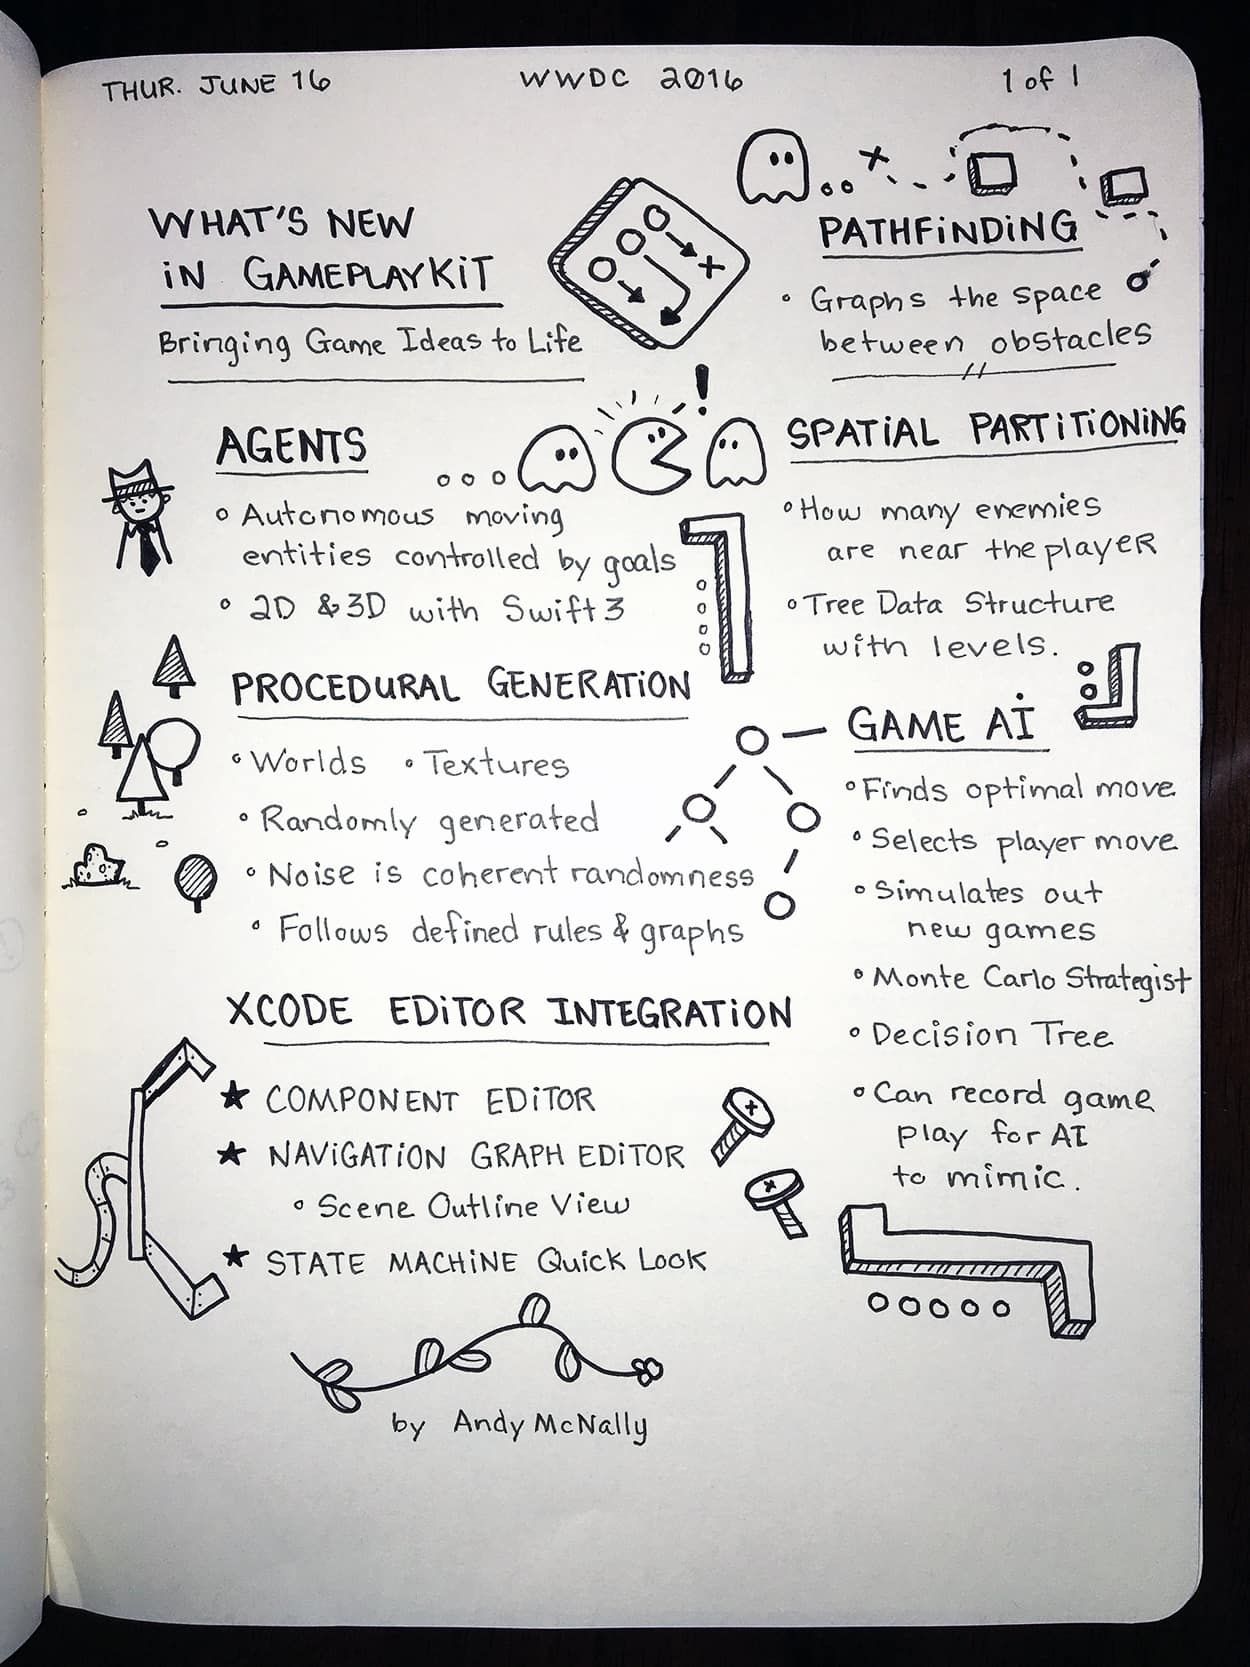 THUR. JUNE 16
WWDC 2016
1 of 1
WHAT'S NEW
IN GAMEPLAYKIT
Bringing Game Ideas to Life
PATHFINDING
• Graphs the space
between obstacles
AGENTS
• Autonomous moving
entities controlled by goals
• 2D & 3D with Swift 3
SPATIAL PARTITIONING
• How many enemies
are near the player
• Tree Data Structure
with levels.
PROCEDURAL GENERATION
• Worlds • Textures
• Randomly generated
• Noise is coherent randomness
• Follows defined rules & graphs
GAME AI
• Finds optimal move
• Selects player move
• Simulates out
new games
• Monte Carlo Strategist
• Decision Tree
• Can record game
play for AI
to mimic.
XCODE EDITOR INTEGRATION
★ COMPONENT EDITOR
★ NAVIGATION GRAPH EDITOR
• Scene Outline View
★ STATE MACHINE Quick Look
by Andy McNally